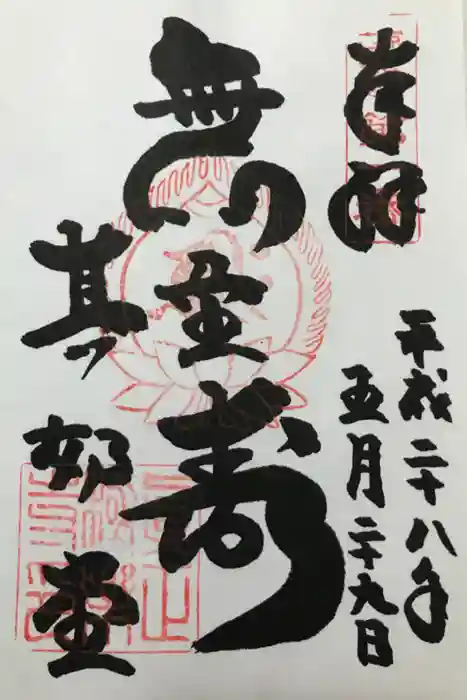 奉拝
平成二十八年
五月二十九日
無量寿
真如堂